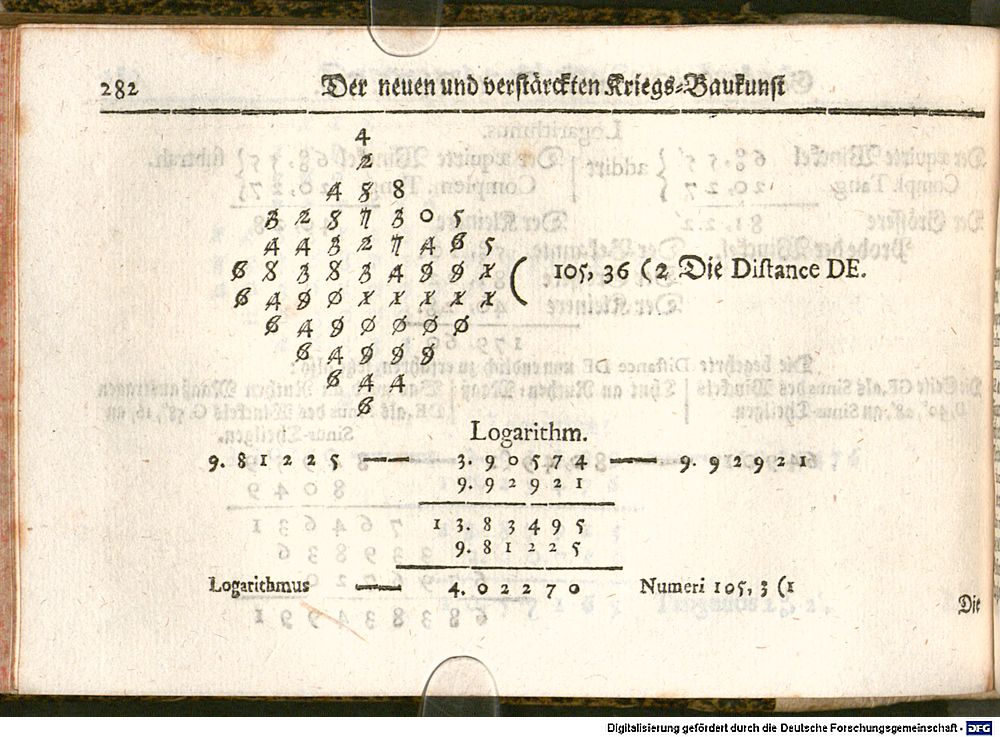 282 Der neuen und verstärckten Kriegs-Baukunst
4
2
4 5 8
3 2 8 7 3 0 5
4 4 3 2 7 4 6 5
6 8 3 8 3 4 9 9 1 ( 105, 36 (2 Die Distance DE.
6 4 9 0 1 1 1 1 1
6 4 9 0 0 0 0
6 4 9 9 9
6 4 4
6
Logarithm.
9. 8 1 2 2 5 —— 3. 9 0 5 7 4 —— 9. 9 2 9 2 1
9. 9 2 9 2 1
1 3. 8 3 4 9 5
9. 8 1 2 2 5
Logarithmus —— 4. 0 2 2 7 0 Numeri 105, 3 (1
Die
Digitalisierung gefördert durch die Deutsche Forschungsgemeinschaft - DFG